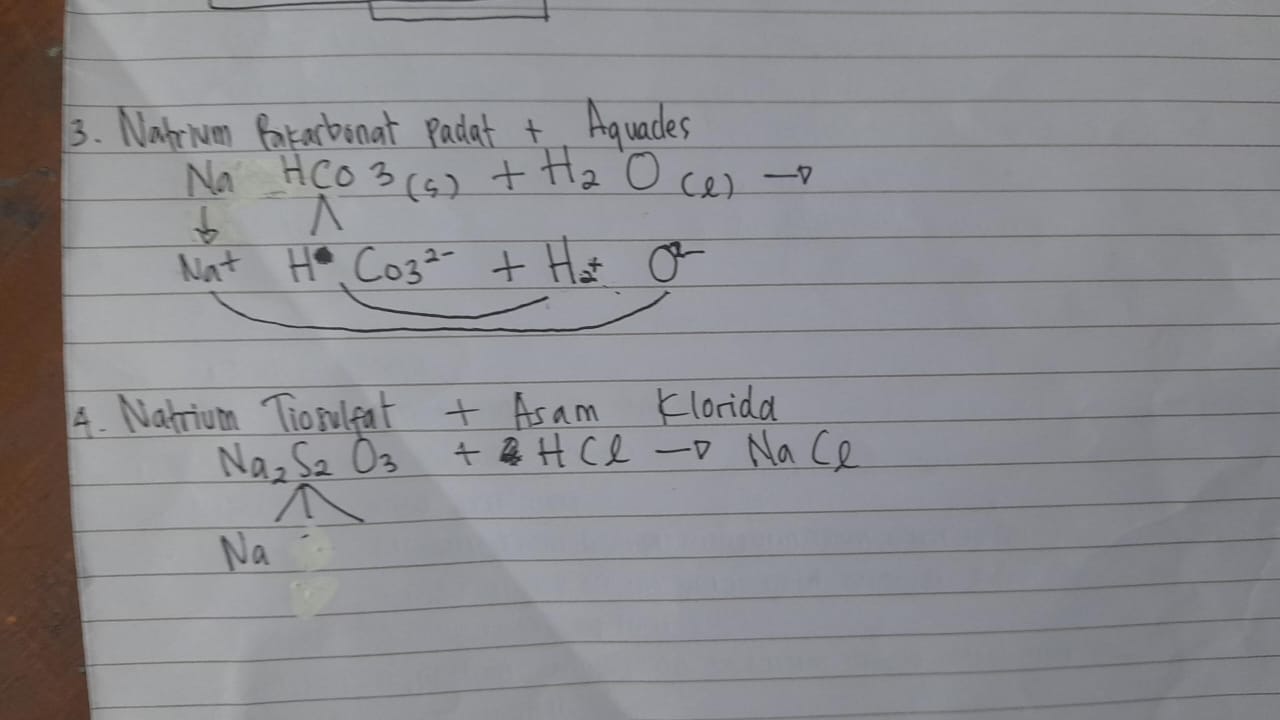 3. Natrium Bikarbonat Padat + Aquades
Na HCO3 (s) + H2O (l) →
Na+ H CO3 2- + H2+ O2-
4. Natrium Tiosulfat + Asam Klorida
Na2S2O3 + HCl → NaCl
Na